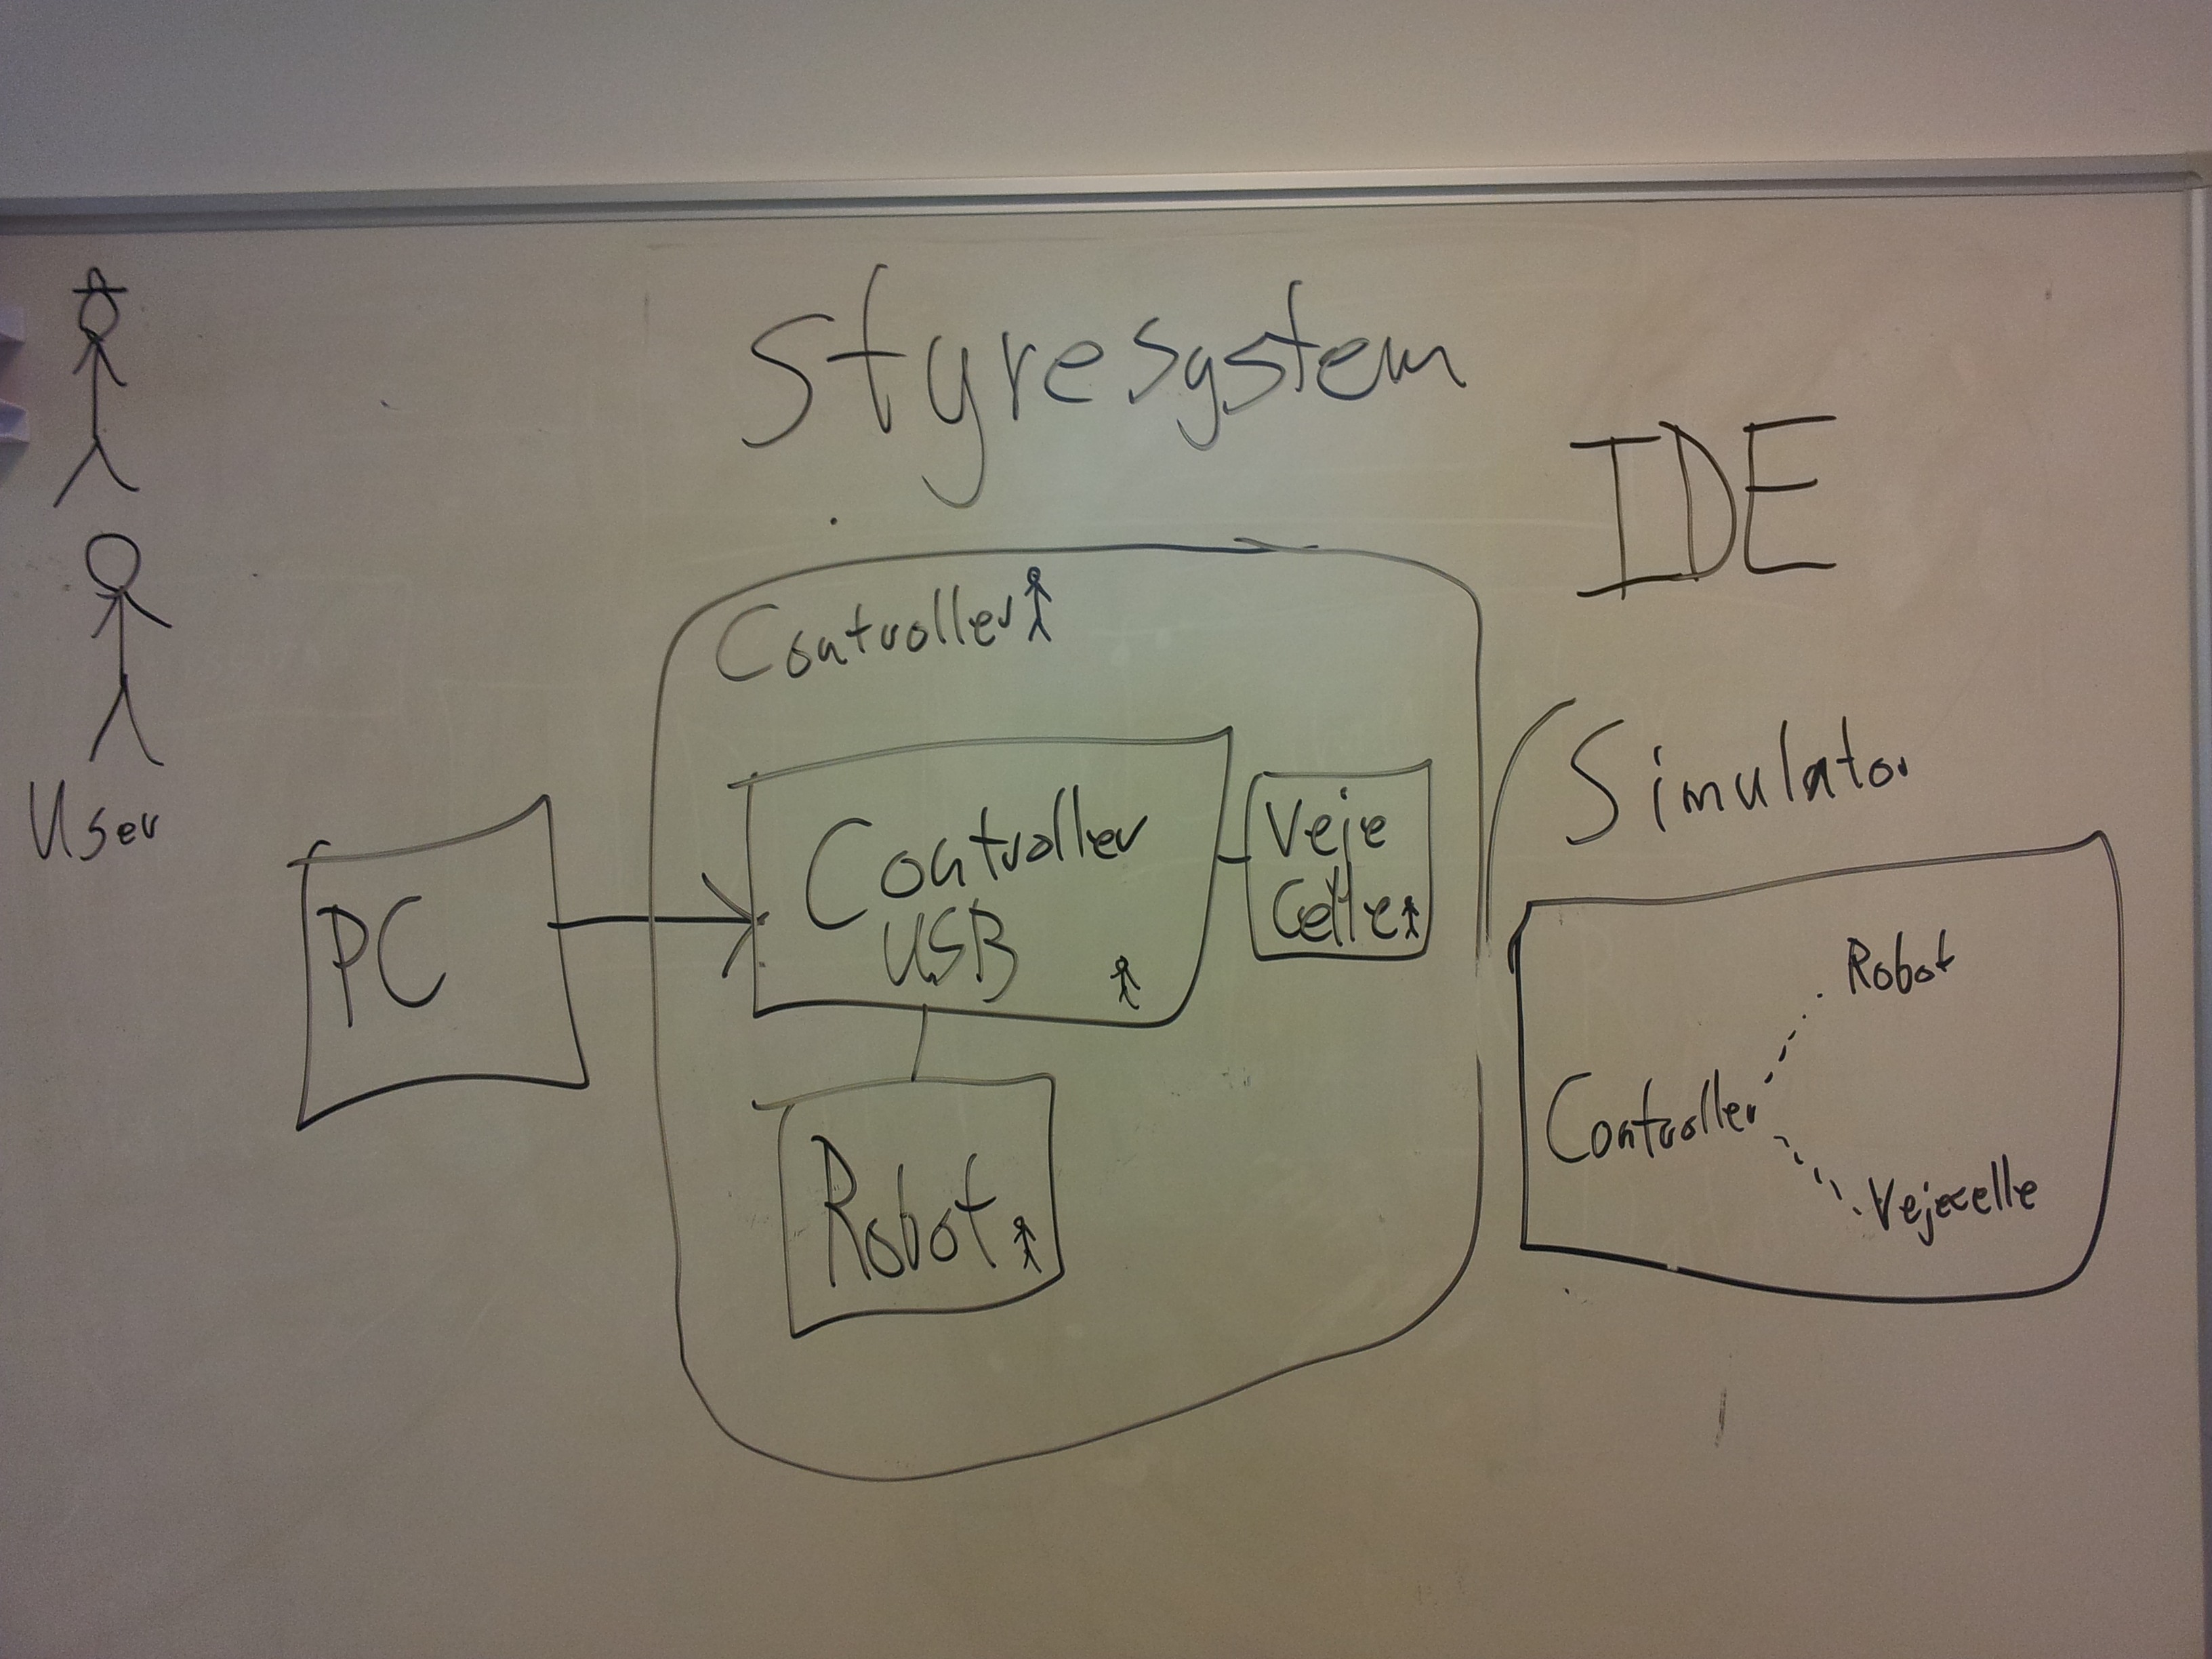 Styresystem
IDE
User
PC
Controller
Controller
USB
Veje
Celle
Robot
Simulator
Robot
Controller
Vejecelle